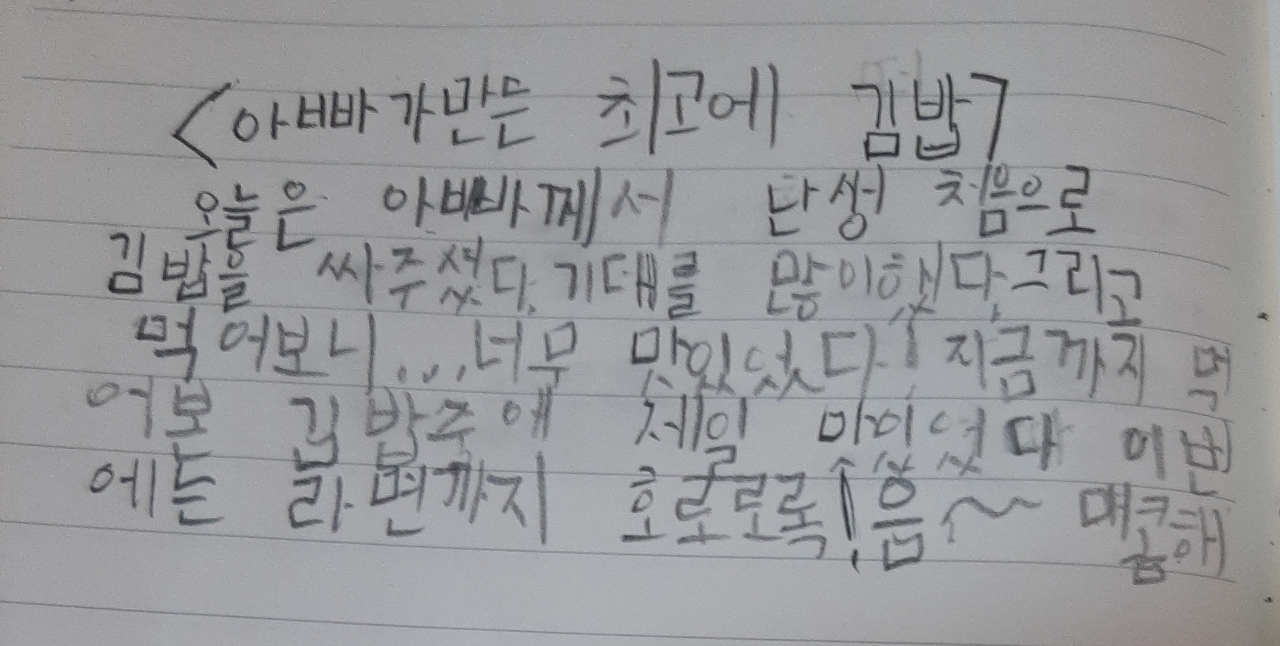 <아빠가만든 최고에 김밥>
오늘은 아빠께서 탄생 처음으로
김밥을 싸주셨다. 기대를 많이했다. 그리고
먹어보니...너무 맛있었다! 지금까지 먹
어본 김밥주에 제일 맛있었다 이번
에든 라면까지 호로로록! 음~ 매콤해